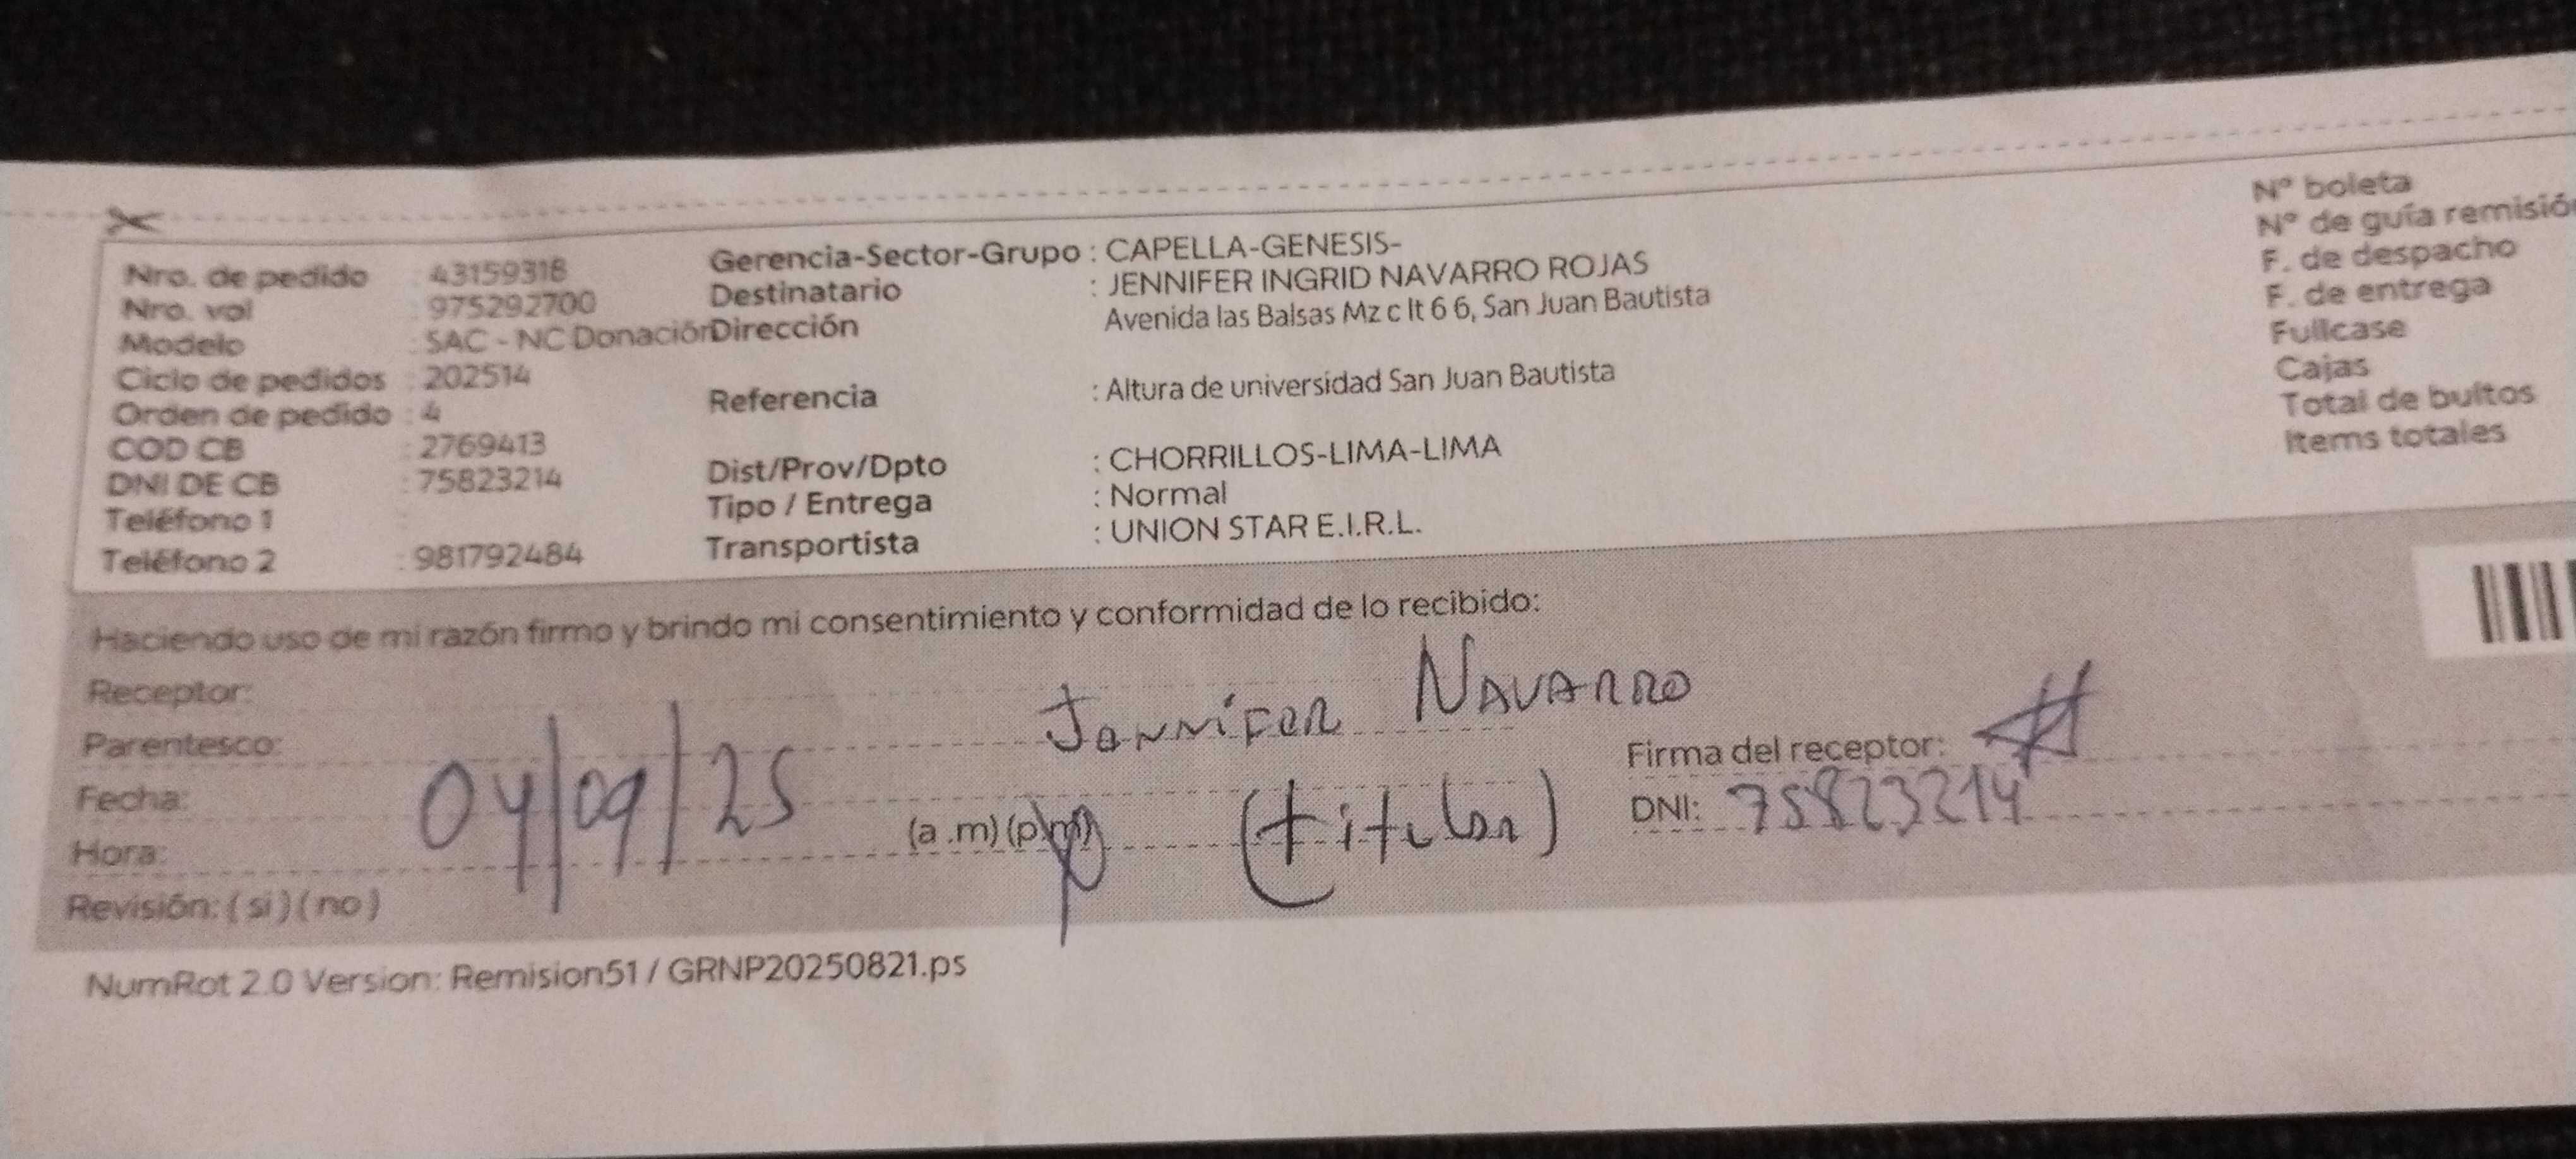 Nro. de pedido : 43159318
Nro. val : 975292700
Modelo : SAC - NC Donación
Ciclo de pedidos : 202514
Orden de pedido : 4
COD CB : 2769413
DNI DE CB : 75823214
Teléfono 1 :
Teléfono 2 : 981792484
Gerencia-Sector-Grupo : CAPELLA-GENESIS-
Destinatario : JENNIFER INGRID NAVARRO ROJAS
Dirección Avenida las Balsas Mz c lt 6 6, San Juan Bautista
Referencia : Altura de universidad San Juan Bautista
Dist/Prov/Dpto : CHORRILLOS-LIMA-LIMA
Tipo / Entrega : Normal
Transportista : UNION STAR E.I.R.L.
N° boleta
N° de guía remisió
F. de despacho
F. de entrega
Fullcase
Cajas
Total de bultos
Items totales
Haciendo uso de mi razón firmo y brindo mi consentimiento y conformidad de lo recibido:
Receptor: Jennifer NAVARRO
Parentesco:
Fecha: 04/09/25
Hora: (a .m) (p.m) (titular)
Revisión: ( si ) ( no )
Firma del receptor:
DNI: 75823214
NumRot 2.0 Version: Remision51 / GRNP20250821.ps